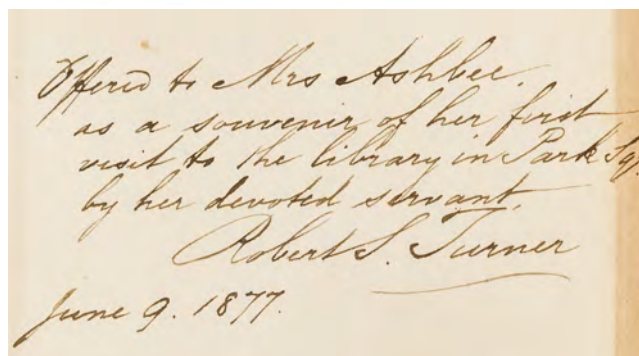 Offered to Mrs Ashbee.
as a souvenir of her first
visit to the library in Park Sq.
by her devoted servant.
Robert S. Turner
June 9. 1877.